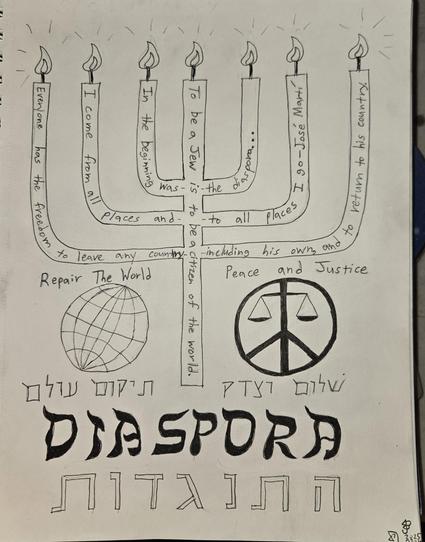 Everyone has the freedom to leave any country including his own, and to return to his country.
I come from all places and to all places I go-José Martí
In the beginning was the diaspora...
To be a Jew is to be a citizen of the world.
Repair The World
Peace and Justice
תיקום עולם
שלום וצדק
DIASPORA
התנגדות